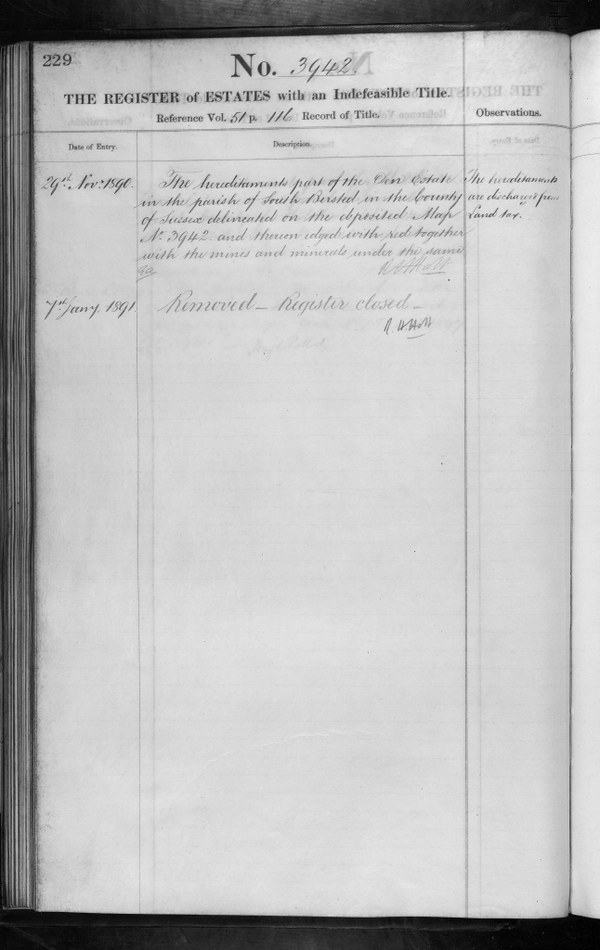 229
No. 3942.
THE REGISTER of ESTATES with an Indefeasible Title.
Reference Vol. 51 p. 116 Record of Title.
Observations.
Date of Entry.
Description.
29th Novr. 1890.
The hereditaments part of the Den Estate
in the parish of South Bersted in the County
of Sussex delineated on the deposited Map
No. 3942 and thereon edged with red together
with the mines and minerals under the same
R H Holt
The hereditaments
are discharged from
Land tax.
7th Jany. 1891
Removed – Register closed –
R. H. Holt